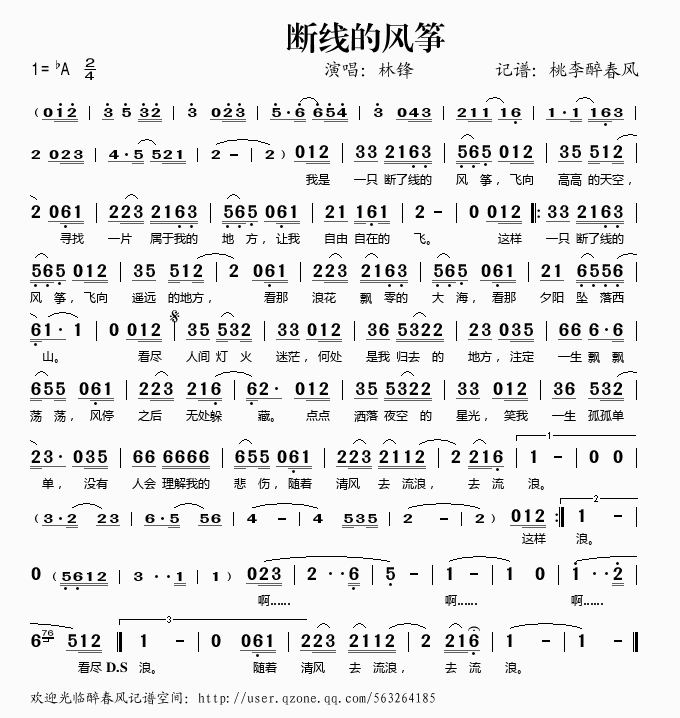 断线的风筝
1=♭A 2/4 演唱：林锋 记谱：桃李醉春风
（012 | 3 5 32 | 3 023 | 5·6 654 | 3 043 | 211 16 | 1·1 163
2 023 | 4·5 521 | 2 － | 2 ）012 | 33 2163 | 565 012 | 35 512
我是 一只 断了线的 风 筝，飞向 高高 的天空，
2 061 | 223 2163 | 565 061 | 21 161 | 2 － | 0 012 ‖: 33 2163
寻找 一片 属于我的 地 方，让我 自由 自在的 飞。 这样 一只 断了线的
565 012 | 35 512 | 2 061 | 223 2163 | 565 061 | 21 6556
风 筝，飞向 遥远 的地方， 看那 浪花 飘 零的 大 海，看那 夕阳 坠 落西
61· 1 | 0 012 | 35 532 | 33 012 | 36 5322 | 23 035 | 66 6·6
山。 看尽 人间 灯 火 迷茫，何处 是我 归去 的 地方，注定 一生 飘飘
655 061 | 223 216 | 62· 012 | 35 5322 | 33 012 | 36 532
荡 荡，风停 之后 无处躲 藏。 点点 洒落 夜空 的 星光，笑我 一生 孤孤单
23· 035 | 66 6666 | 655 061 | 223 2112 | 2 216 | 1 － | 0 0
1
单，没有 人会 理解我的 悲 伤，随着 清风 去 流浪， 去 流 浪。
（3·2 23 | 6·5 56 | 4 － | 4 535 | 2 － | 2 ）| 012 :‖ 1 －
2
这样 浪。
0 （5612 | 3 ··1 1 | 1）023 | 2 ··6 | 5 － | 1 － | 1 0 | 1 ··2
啊…… 啊…… 啊……
6 76 512 ‖ 1 － | 0 061 | 223 2112 | 2 216 | 1 － | 1 － ‖
3
看尽 D.S 浪。 随着 清风 去 流浪， 去 流 浪。
欢迎光临醉春风记谱空间：http://user.qzone.qq.com/563264185